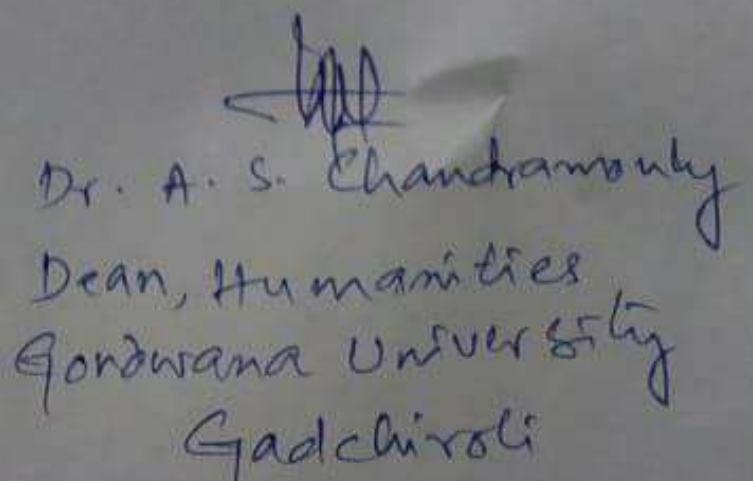 Dr. A. S. Chandramouly
Dean, Humanities
Gondwana University
Gadchiroli